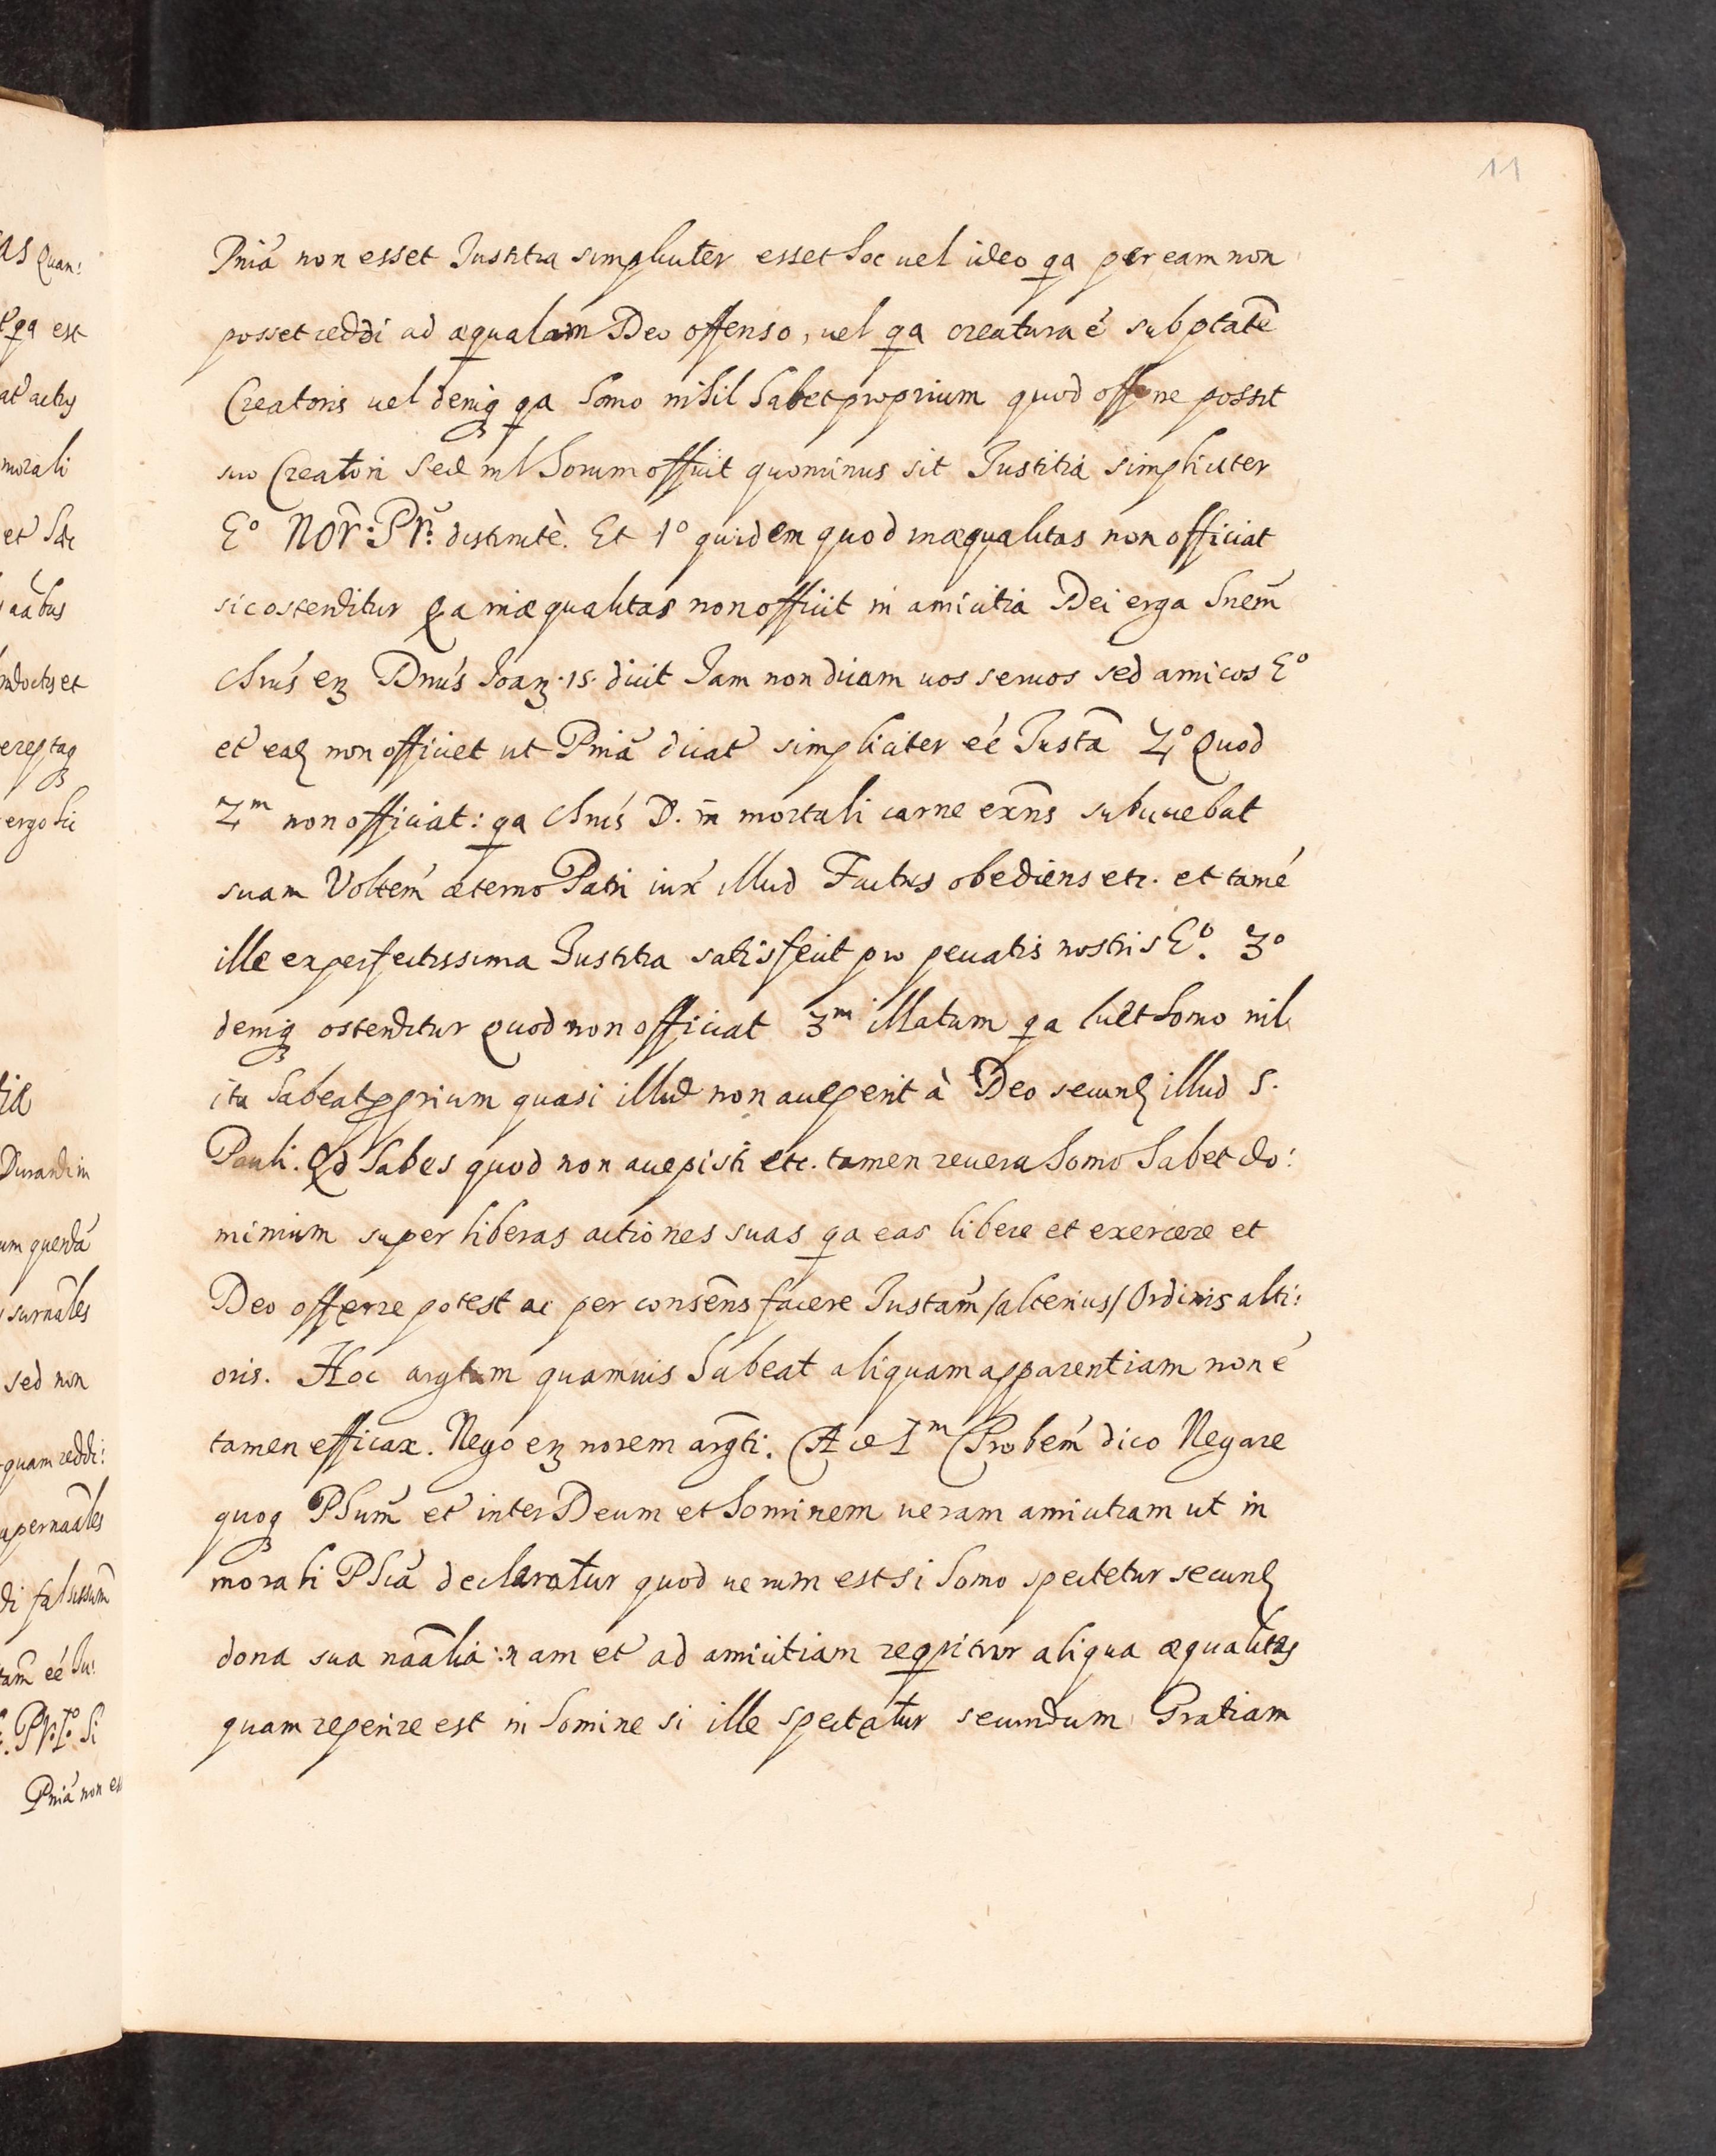 11
Pniã non esset Justitia simpliciter esset hoc uel ideo qa per eam non
posset reddi ad æqualam Deo offenso, uel qa creatura é sub ptatẽ
Creatoris uel deniq qa homo nihil habet proprium quod offerre possit
suo Creatori Sed nl horum officit quominus sit Justitia simpliciter
Eº Nor: Pr: distinctè. Et 1º quidem quod inæqualitas non officiat
sic ostenditur Qa inæqualitas non officit in amicitia Dei erga hnem̃
Chrũs ez Dnũs Joaz. 15. dicit Jam non dicam uos seruos sed amicos Eº
et ead non officiet ut Pniã dicat simpliciter eé Justã 2º Quod
2m non officiat: qa Chrũs D. in mortali carne exñs subiiciebat
suam Voltem̃ æterno Patri iux illud Factus obediens etc. et tamé
ille ex perfectissima Justitia satisfecit pro peccatis nostris Eº. 3º
deniq ostenditur quod non officiat 3m illatum qa licet homo nil
ita habeat pprium quasi illud non acceperit à Deo secund illud S.
Pauli. Qd habes quod non accepisti etc. tamen reuera homo habet do:
minium super liberas actiones suas qa eas libere et exercere et
Deo offerre potest ac per conseñs facere Justam̃ /alterius/ Ordinis alti:
oris. Hoc argtum quamuis habeat aliquam apparentiam non é
tamen efficax. Nego ez norem argti: Ad 1m Probem̃ dico Negare
quoq Phum̃ et inter Deum et hominem ueram amicitiam ut in
morali Phiã declaratur quod uerum est si homo spectetur secund
dona sua naãlia: nam et ad amicitiam requiritur aliqua æqualitas
quam reperire est in homine si ille spectatur secundum Gratiam